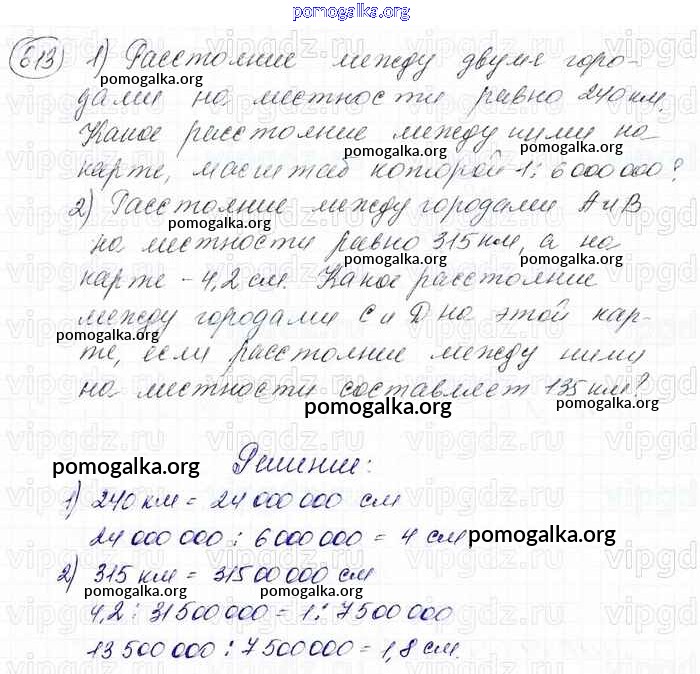 pomogalka.org
613 1) Расстояние между двумя горо-
pomogalka.org
дами на местности равно 240 км.
Какое расстояние между ними на
pomogalka.org
карте, масштаб которой 1 : 6 000 000?
2) Расстояние между городами А и В
pomogalka.org pomogalka.org
на местности равно 315 км, а на
pomogalka.org pomogalka.org
карте - 4,2 см. Какое расстояние
между городами С и D на этой кар-
pomogalka.org pomogalka.org
те, если расстояние между ними
на местности составляет 135 км?
pomogalka.org pomogalka.org
Решение:
pomogalka.org
1) 240 км = 24 000 000 см
pomogalka.org pomogalka.org
24 000 000 : 6 000 000 = 4 см
pomogalka.org
2) 315 км = 31500 000 см
pomogalka.org pomogalka.org
4,2 : 31 500 000 = 1 : 7 500 000
13 500 000 : 7 500 000 = 1,8 см.
pomogalka.org pomogalka.org